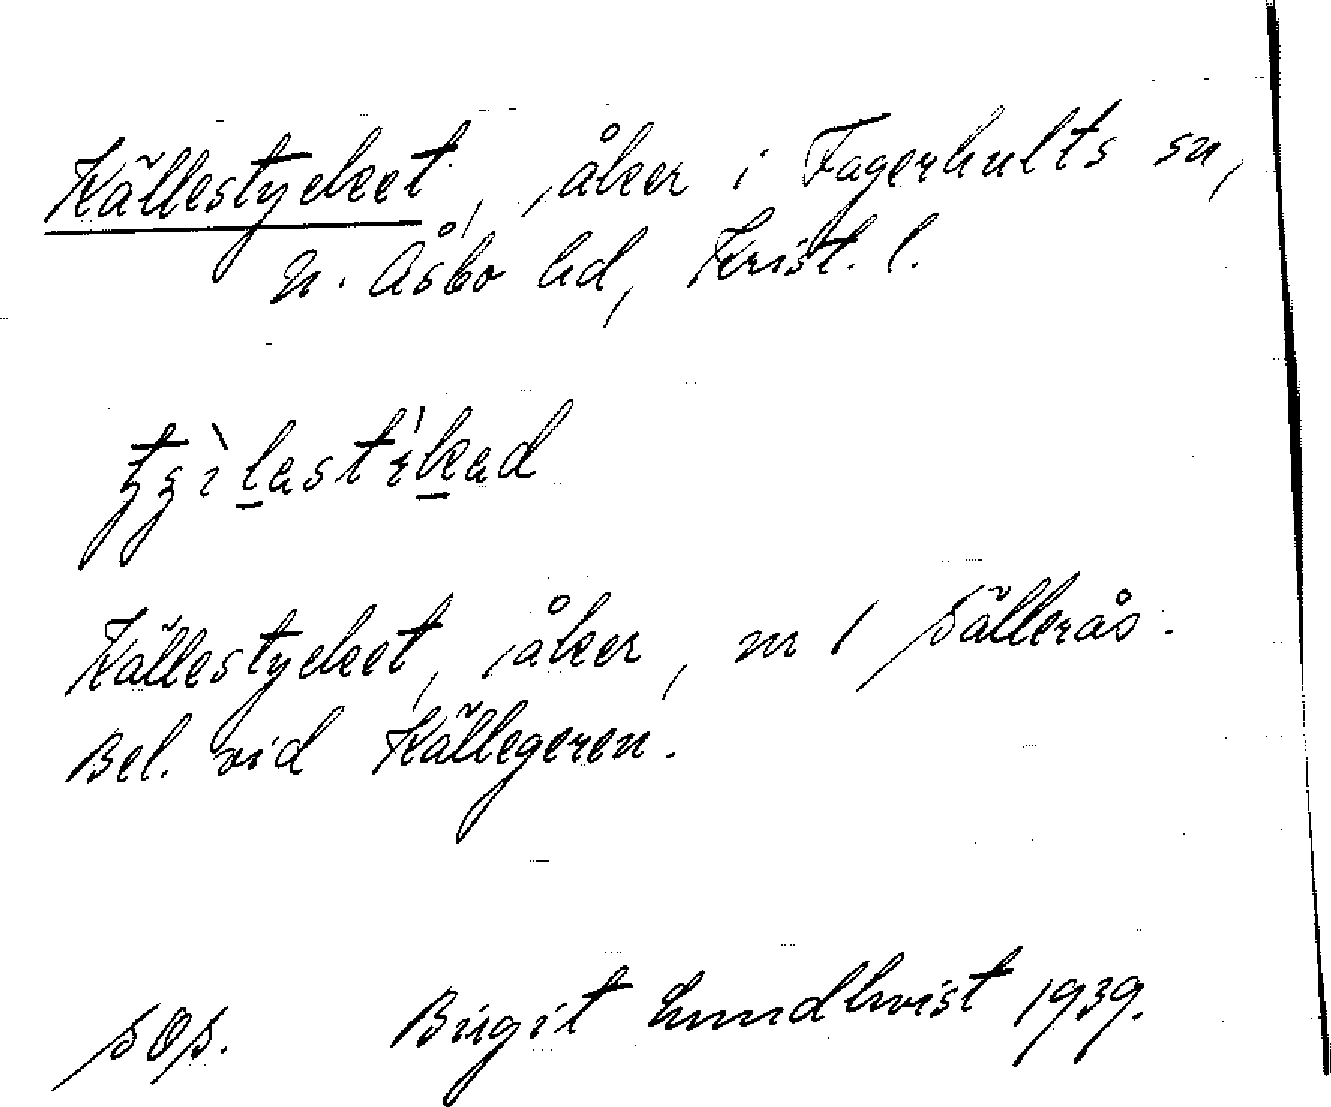 Källestycket, åker i Fagerhults sn,
N. Åsbo hd, Krist. l.
Källestycket, åker, nr 1 Sällerås.
Bel. vid Källegeren.
SOS. Birgit Lundkvist 1939.